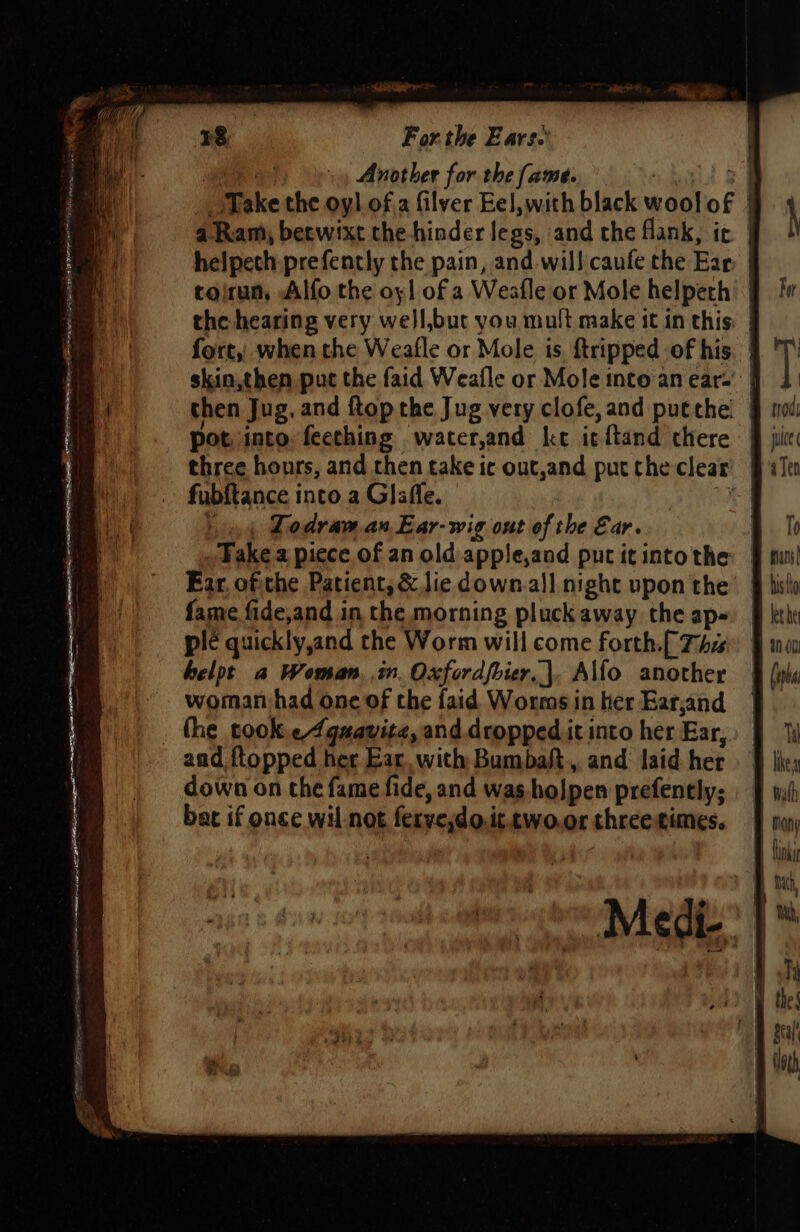 18 For the Ears.
Another for the ſame.
Take the oyl of a ſilver Eel, with black wool of
a Ram, betwixt the hinder legs, and the flank, it
helpeth preſently the pain, and will cauſe the Ear
to run, Alſo the oyl of a Weaſle or Mole helpeth
the hearing very well, but you muſt make it in this
ſort, when the Weaſle or Mole is ſtripped of his
skin, then put the ſaid Weaſle or Mole into an ear-
then Jug, and ſtop the Jug very cloſe, and put the
pot into ſeething water, and let it ſtand there
three hours, and then take it out, and put the clear
ſubſtance into a Glaſſe.
To draw an Ear-wig out of the Ear.
Take a piece of an old apple, and put it into the
Ear of the Patient, & lie down all night upon the
ſame ſide, and in the morning pluck away the ap-
ple quickly, and the Worm will come forth. [This
helpt a Woman in Oxfordſhier.] Alſo another
woman had one of the ſaid Worms in her Ear, and
ſhe took Aquavitæ, and dropped it into her Ear,
and ſtopped her Ear with Bumbaſt, and laid her
down on the ſame ſide, and was holpen preſently;
bat if once wil not ſerve, do it two or three times.
Medi-